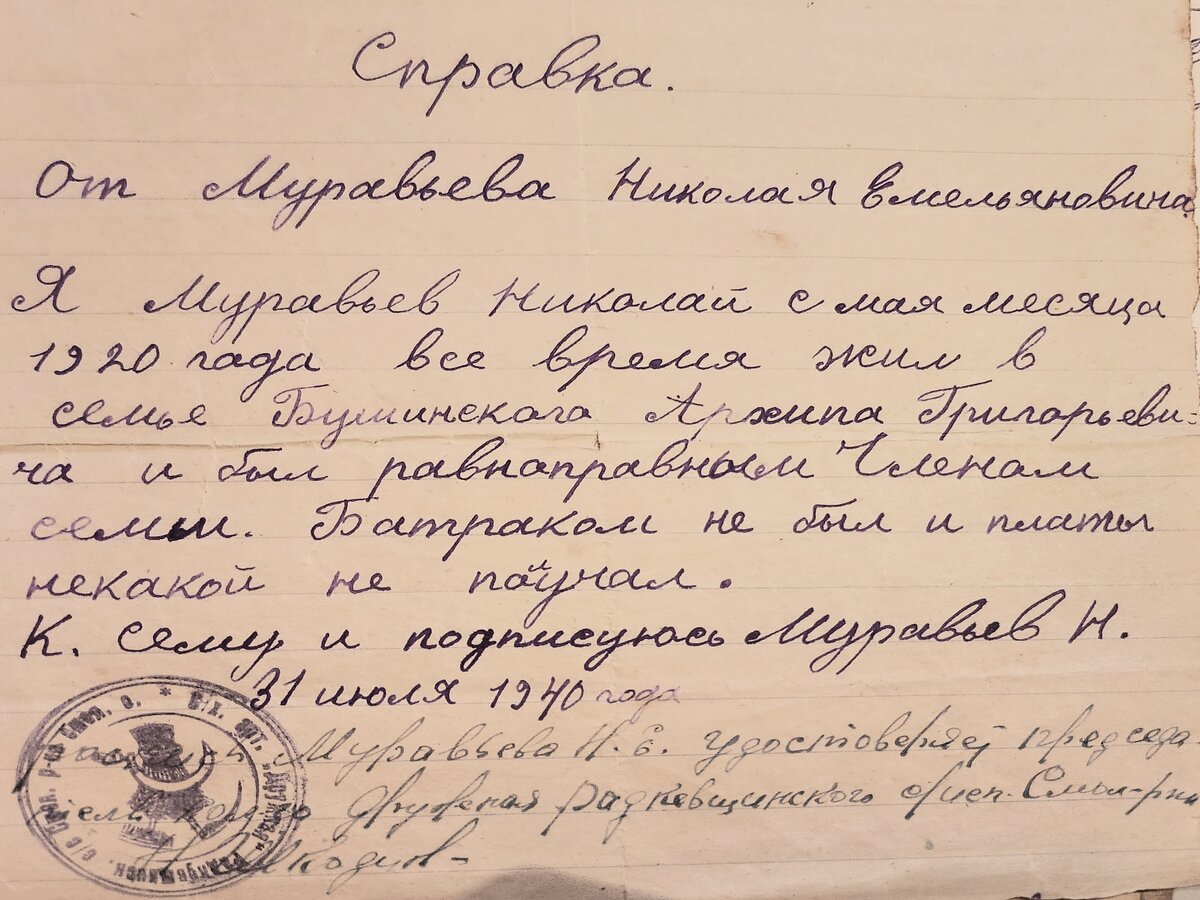 Справка.
От Муравьева Николая Емельяновича
Я Муравьев Николай с мая месяца
1920 гада все время жил в
семье Бушинского Архипа Григорьеви-
ча и был равнаправным Членам
семьи. Батраком не был и платы
некакой не получал.
К. сему и подписуюсь Муравьев Н.
31 июля 1940 года
Муравьева Н. Е. удостоверяет председа
тель Дружная Радкевщинского с/исп. Смол-рна
* С/Х. арт. "Дружная" Радкевщинск. с/с Смол. р-на Смол. о.